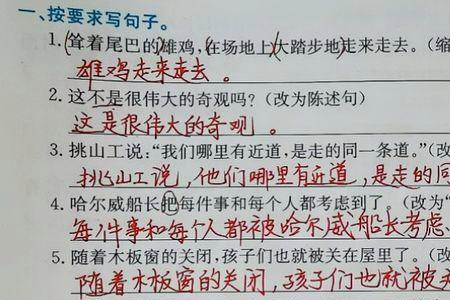 一、按要求写句子。
1.耸着尾巴的雄鸡,在场地上大踏步地走来走去。(缩
雄鸡走来走去。
2.这不是很伟大的奇观吗?(改为陈述句)
这是很伟大的奇观。
3.挑山工说:“我们哪里有近道,是走的同一条道。”(改
挑山工说,他们哪里有近道,是走的同
4.哈尔威船长把每件事和每个人都考虑到了。(改为“
每件事和每个人都被哈尔威船长考虑
5.随着木板窗的关闭,孩子们也就被关在屋里了。(改
随着木板窗的关闭,孩子们也就被关